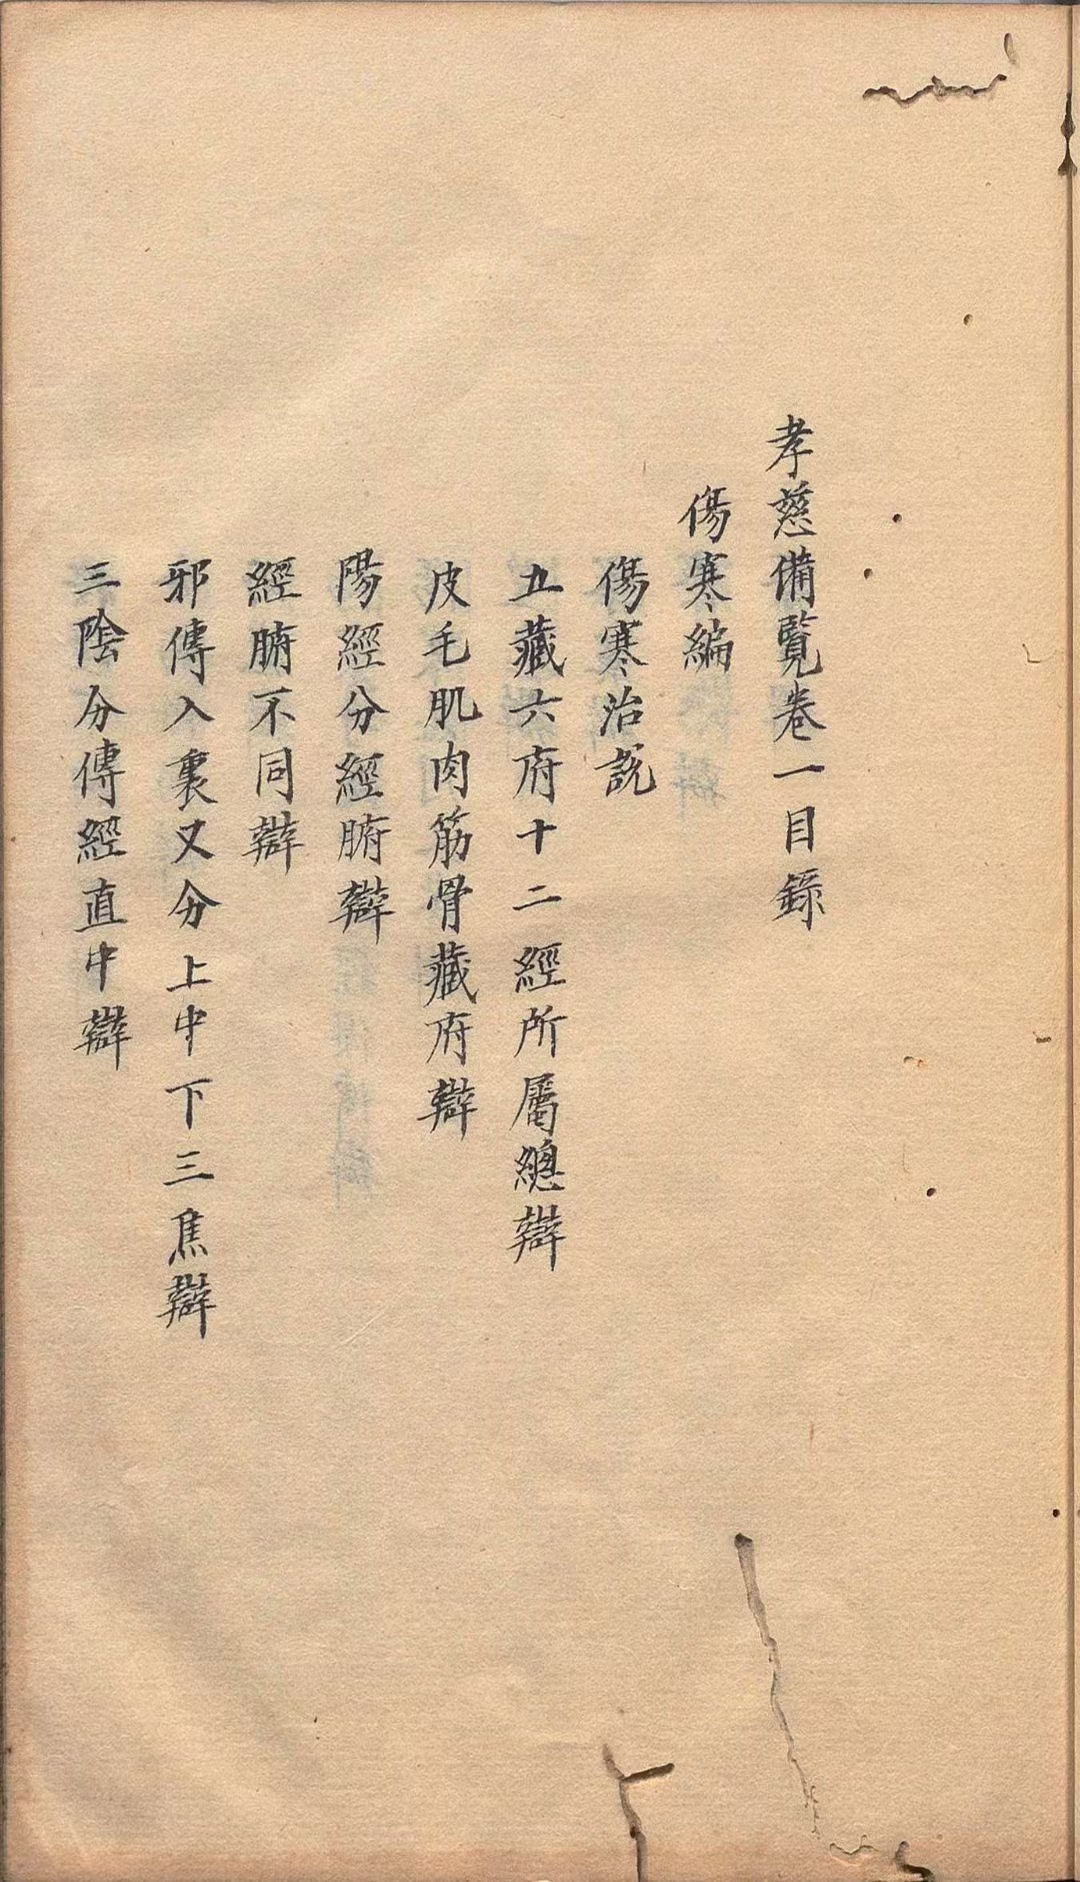 孝慈備覽卷一目錄
傷寒編
傷寒治說
五藏六府十二經所屬總辯
皮毛肌肉筋骨藏府辯
陽經分經腑辯
經腑不同辯
邪傳入裏又分上中下三焦辯
三陰分傳經直中辯